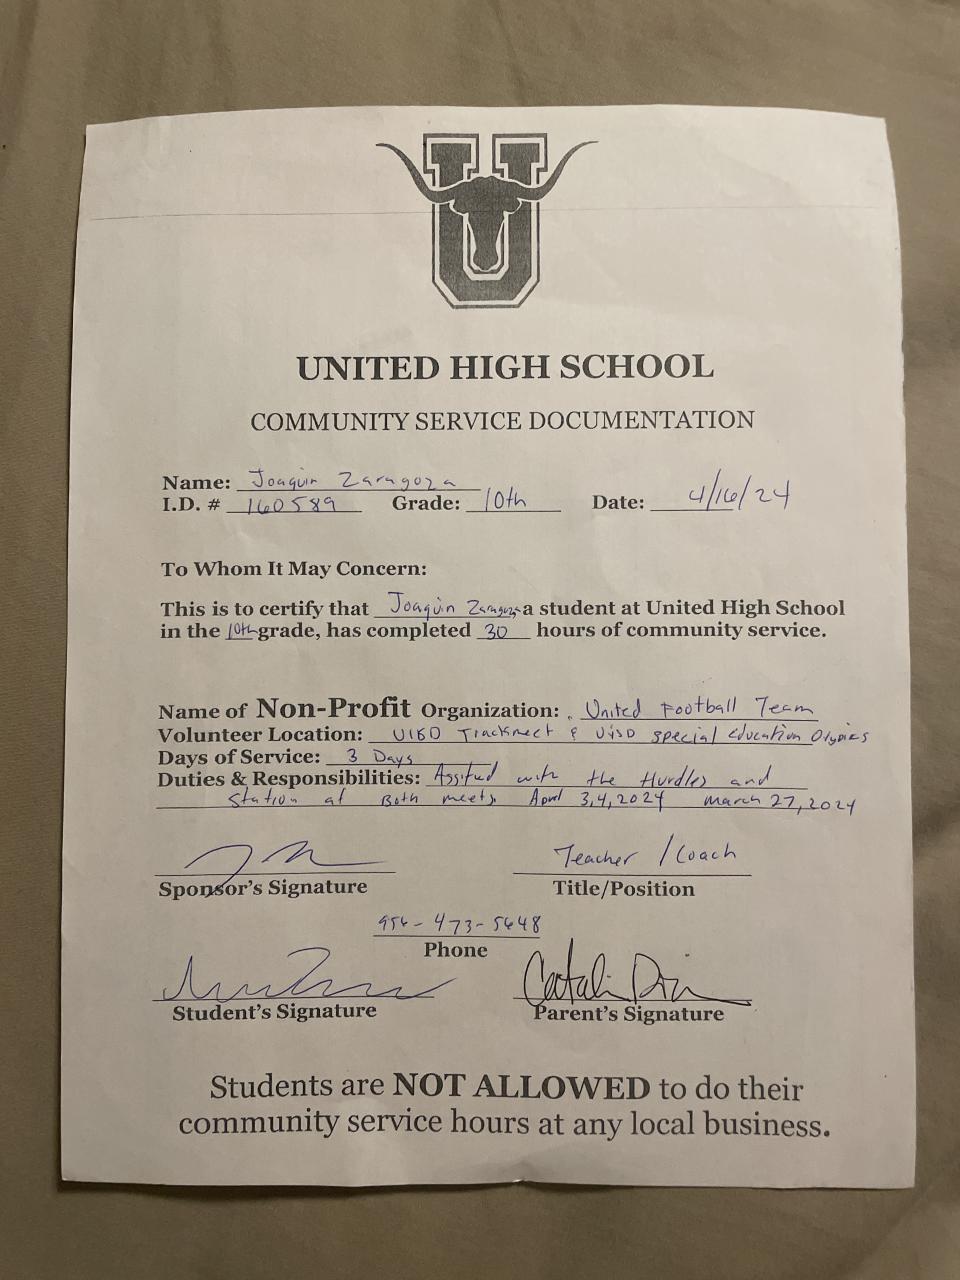 U
UNITED HIGH SCHOOL
COMMUNITY SERVICE DOCUMENTATION
Name: Joaquin Zaragoza
I.D. # 160589 Grade: 10th Date: 4/16/24
To Whom It May Concern:
This is to certify that Joaquin Zaragoza, a student at United High School
in the 10th grade, has completed 30 hours of community service.
Name of Non-Profit Organization: United Football Team
Volunteer Location: UISD Trackmeet & UISD special education Olympics
Days of Service: 3 Days
Duties & Responsibilities: Assisted with the Hurdles and
Station at Both meets. April 3,4,2024 march 27,2024
Teacher / Coach
Sponsor's Signature Title/Position
956-473-5648
Phone
Student's Signature Parent's Signature
Students are NOT ALLOWED to do their
community service hours at any local business.